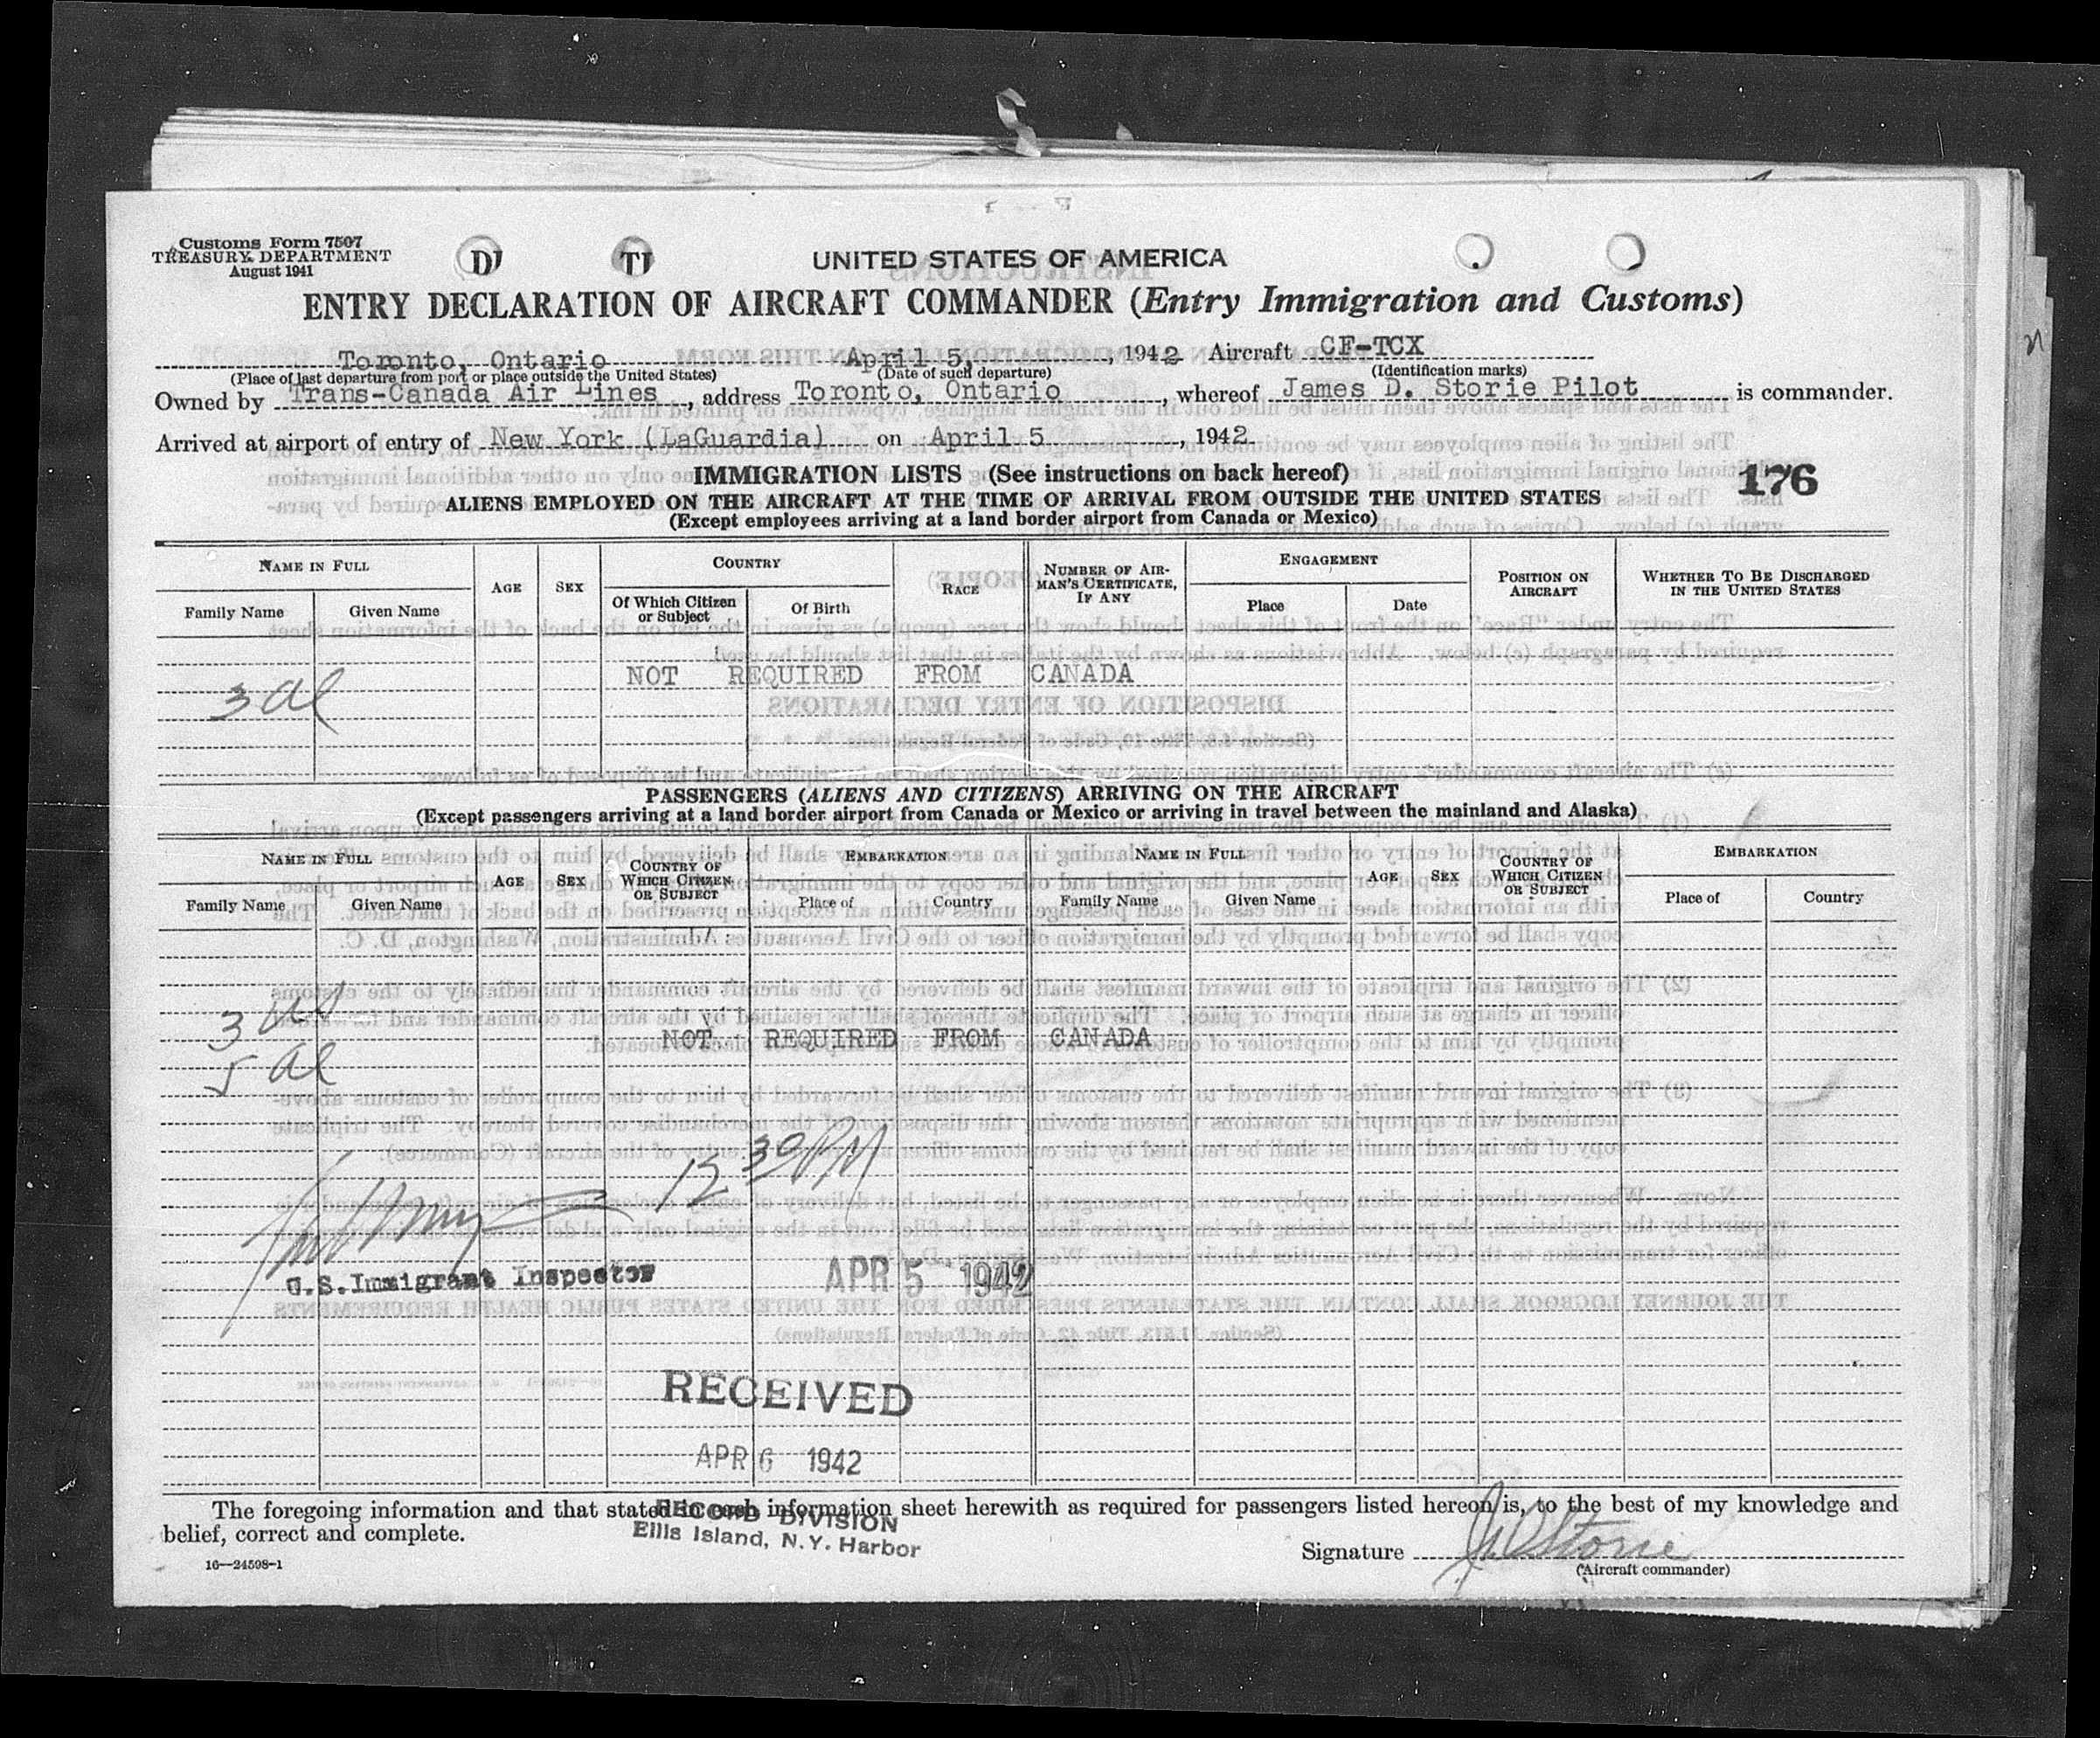 Customs Form 7507
TREASURY DEPARTMENT
August 1941
UNITED STATES OF AMERICA
ENTRY DECLARATION OF AIRCRAFT COMMANDER (Entry Immigration and Customs)
Toronto, Ontario April 5, 1942 Aircraft CF-TCX
(Place of last departure from port or place outside the United States) (Date of such departure) (Identification marks)
Owned by Trans-Canada Air Lines, address Toronto, Ontario, whereof James D. Storie Pilot is commander.
Arrived at airport of entry of New York (LaGuardia) on April 5, 1942.
IMMIGRATION LISTS (See instructions on back hereof)
176
ALIENS EMPLOYED ON THE AIRCRAFT AT THE TIME OF ARRIVAL FROM OUTSIDE THE UNITED STATES
(Except employees arriving at a land border airport from Canada or Mexico)
NAME IN FULL AGE SEX COUNTRY RACE NUMBER OF AIRMAN'S CERTIFICATE, IF ANY ENGAGEMENT POSITION ON AIRCRAFT WHETHER TO BE DISCHARGED IN THE UNITED STATES
Family Name Given Name Of Which Citizen or Subject Of Birth Place Date
NOT REQUIRED FROM CANADA
3 al
PASSENGERS (ALIENS AND CITIZENS) ARRIVING ON THE AIRCRAFT
(Except passengers arriving at a land border airport from Canada or Mexico or arriving in travel between the mainland and Alaska)
NAME IN FULL AGE SEX COUNTRY OF WHICH CITIZEN OR SUBJECT EMBARKATION NAME IN FULL AGE SEX COUNTRY OF WHICH CITIZEN OR SUBJECT EMBARKATION
Family Name Given Name Place of Country Family Name Given Name Place of Country
3 US
NOT REQUIRED FROM CANADA
5 al
12 30 PM
U.S. Immigrant Inspector
APR 5 1942
RECEIVED
APR 6 1942
RECORD DIVISION
Ellis Island, N.Y. Harbor
The foregoing information and that stated in each information sheet herewith as required for passengers listed hereon is, to the best of my knowledge and
belief, correct and complete.
Signature J D Storie
(Aircraft commander)
16—24598-1